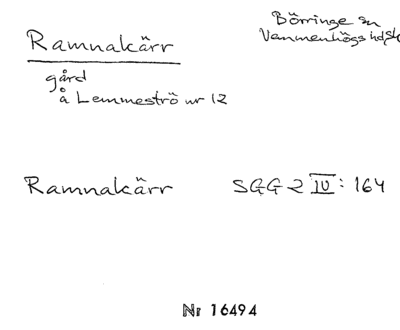 Ramnakärr
Börringe sn
Vemmenhögs hd, Sk
gård
å Lemmeströ nr 12
Ramnakärr SGG 2 IV: 164
Nr 16494